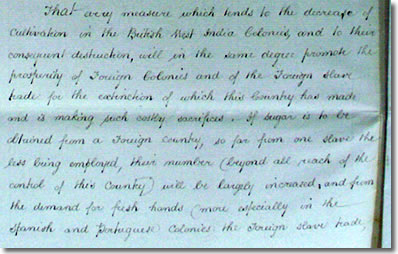 That every measure which tends to the decrease of
Cultivation in the British West India Colonies, and to their
consequent destruction, will in the same degree promote the
prosperity of Foreign Colonies and of the Foreign slave
trade for the extinction of which this Country has made
and is making such costly sacrifices. If sugar is to be
obtained from a Foreign Country, so far from one slave the
less being employed, their number (beyond all reach of the
control of this Country) will be largely increased, and from
the demand for fresh hands (more especially in the
Spanish and Portuguese Colonies the Foreign slave trade,